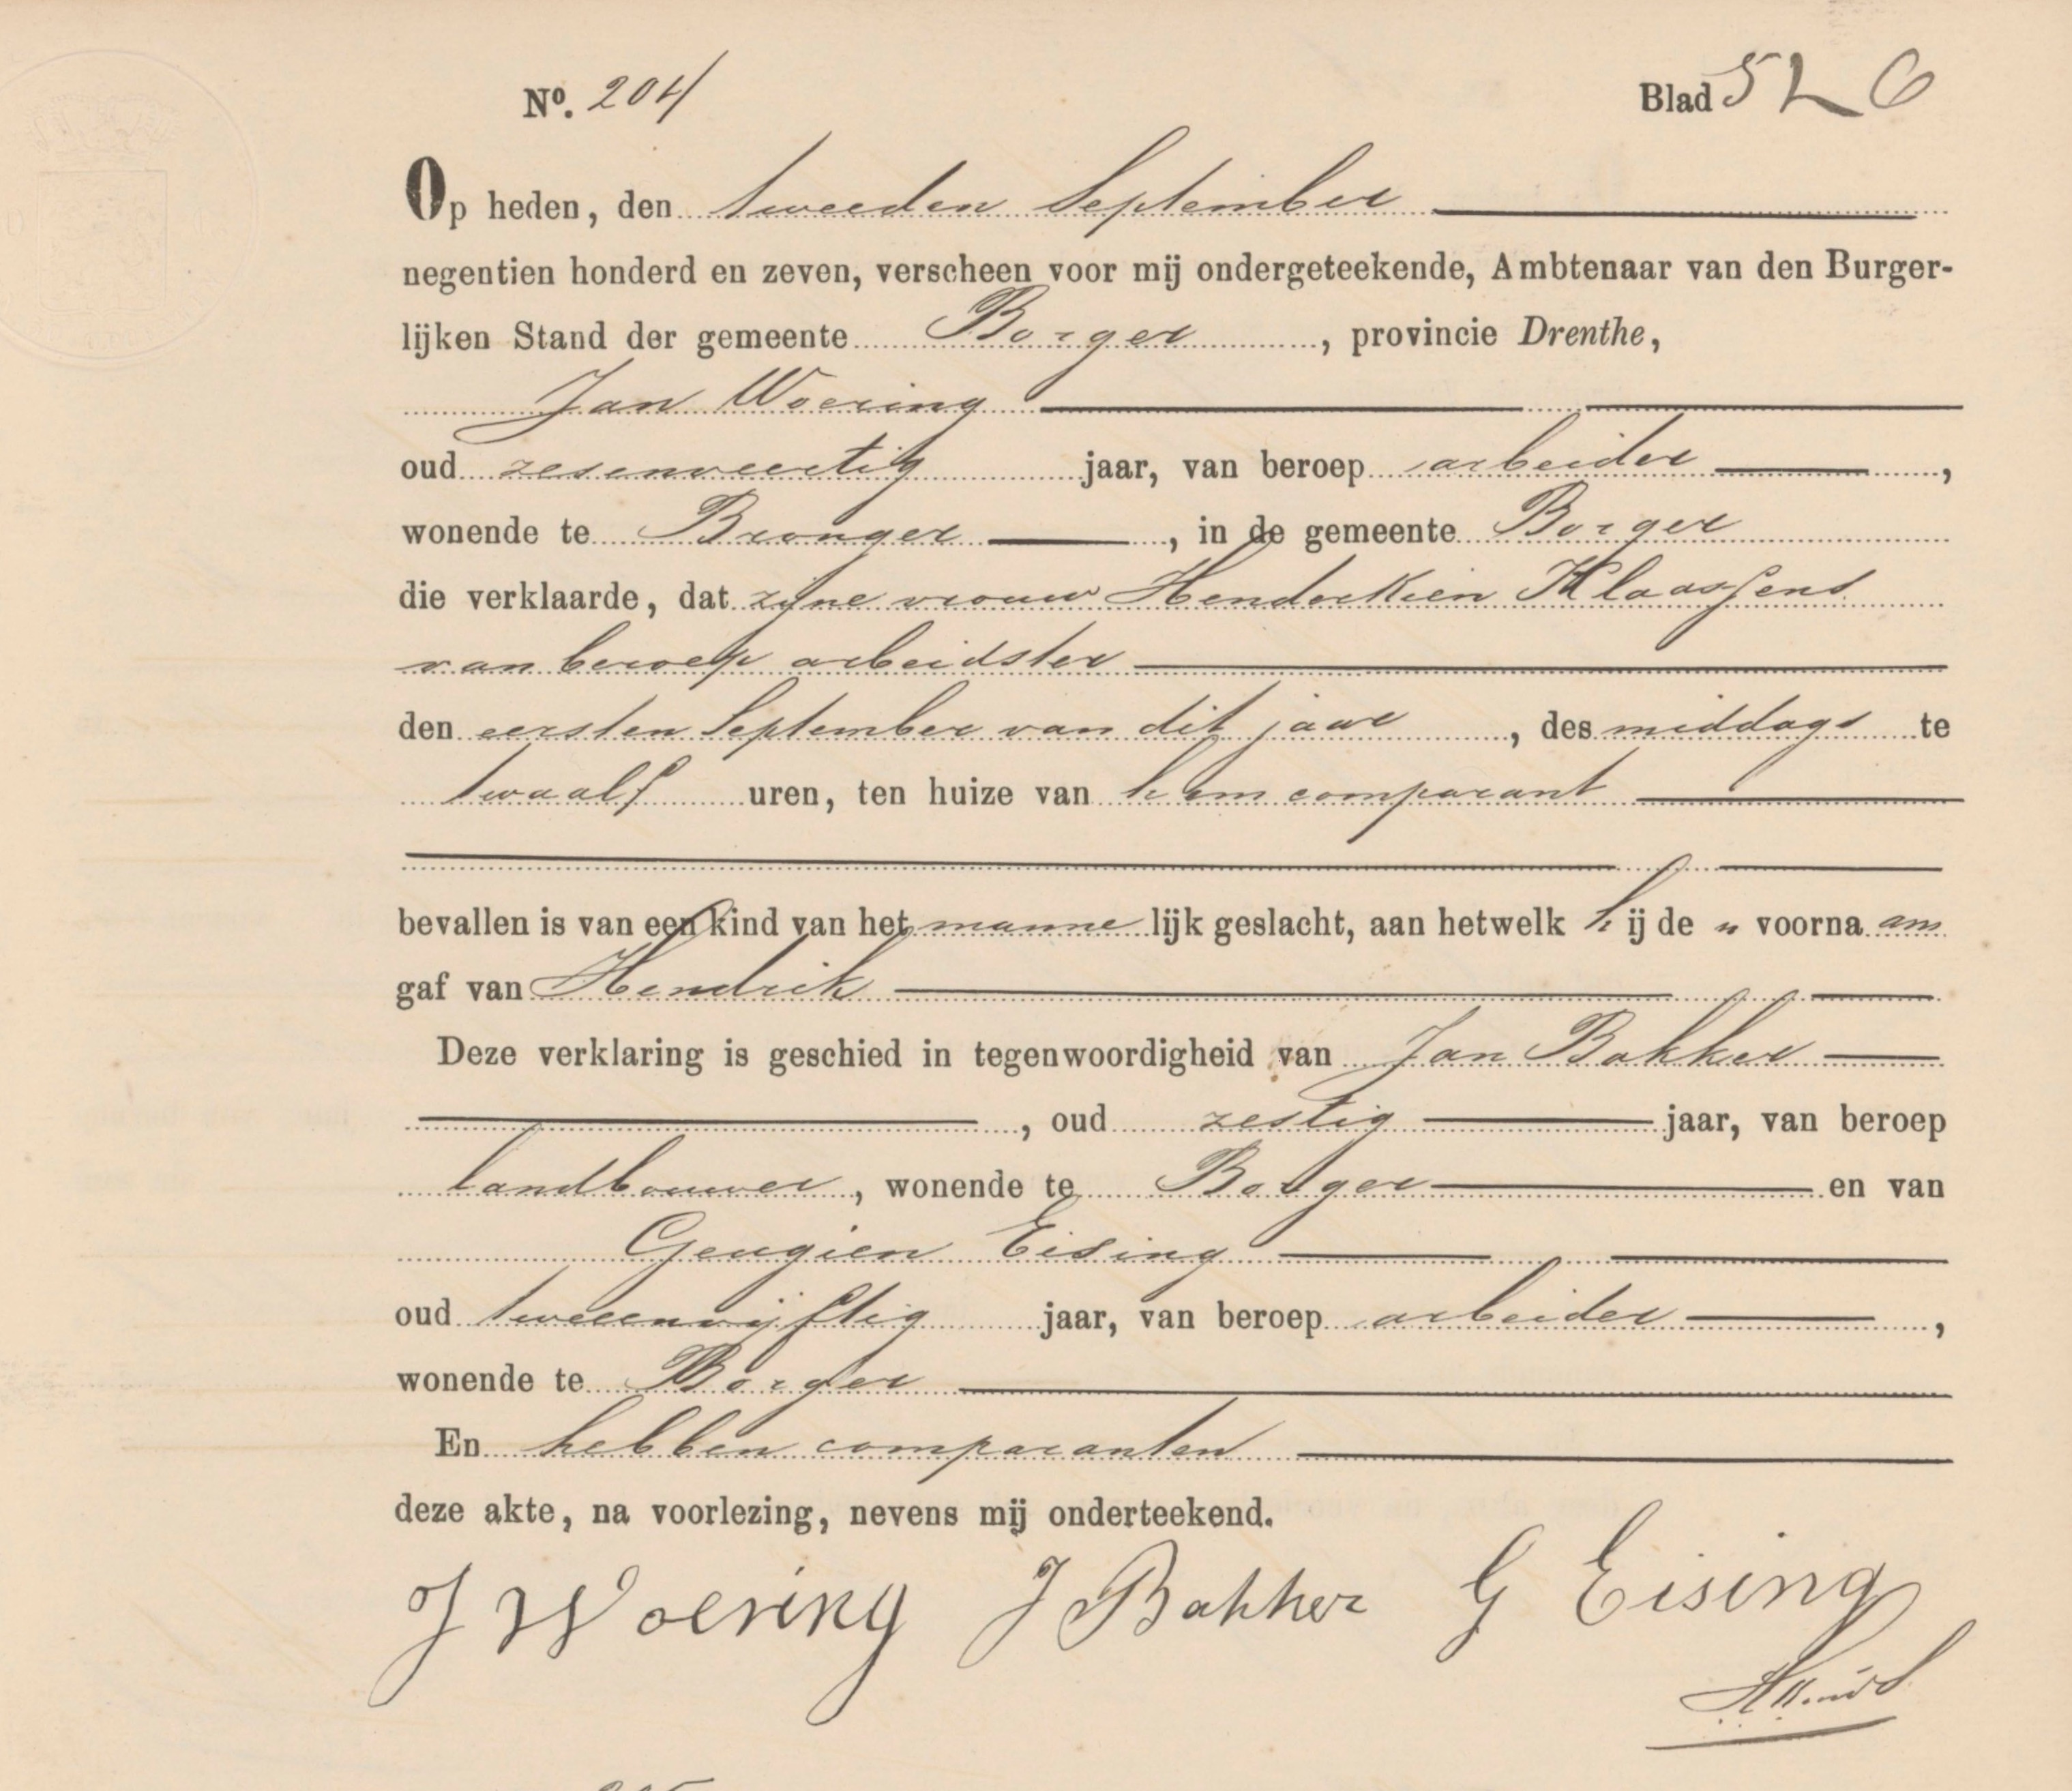 Nº. 204 Blad 52 6
Op heden, den tweeden September
negentien honderd en zeven, verscheen voor mij ondergeteekende, Ambtenaar van den Burger-
lijken Stand der gemeente Borger, provincie Drenthe,
Jan Woering
oud zesenveertig jaar, van beroep arbeider,
wonende te Bronger, in de gemeente Borger
die verklaarde, dat zijne vrouw Henderkien Klaassens
van beroep arbeidster
den eersten September van dit jaar, des middags te
twaalf uren, ten huize van hem comparant
bevallen is van een kind van het mannelijk geslacht, aan hetwelk hij de n voornaam
gaf van Hendrik
Deze verklaring is geschied in tegenwoordigheid van Jan Bakker
, oud zestig jaar, van beroep
landbouwer, wonende te Borger en van
Geugien Eising
oud tweeenvijftig jaar, van beroep arbeider,
wonende te Borger
En hebben comparanten
deze akte, na voorlezing, nevens mij onderteekend.
J Woering J Bakker G Eising